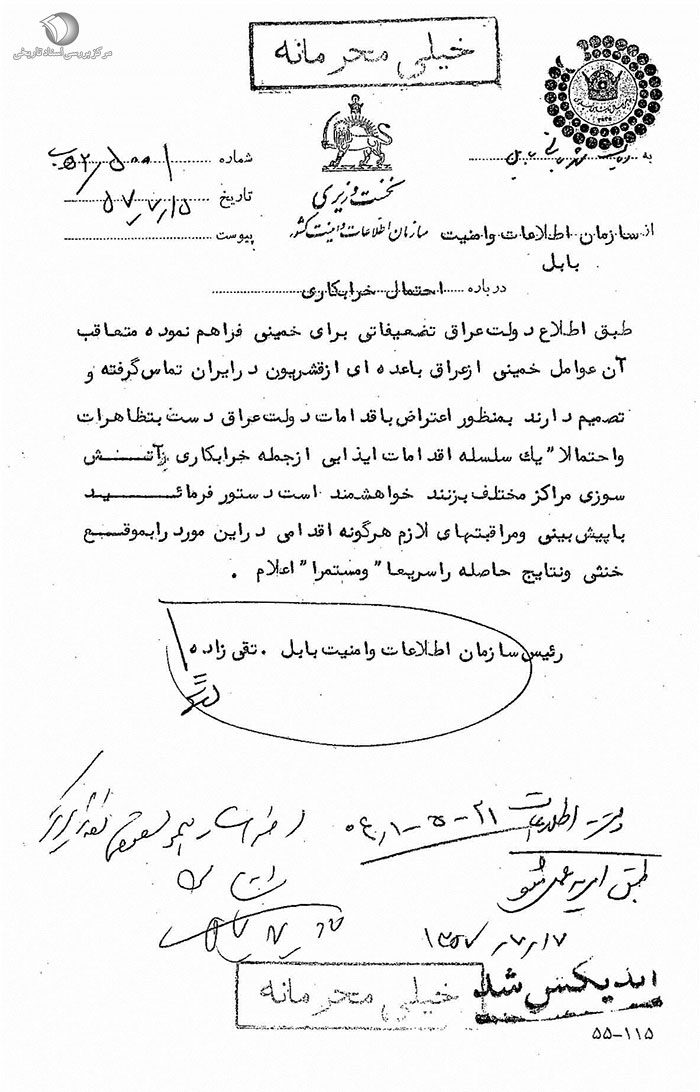 مرکز بررسی اسناد تاریخی
خیلی محرمانه
به ریاست شهربانی بابل
شماره
تاریخ ۵۷٫۷٫۱۵
پیوست
نخست وزیری
سازمان اطلاعات و امنیت کشور
از سازمان اطلاعات وامنیت
بابل
درباره احتمال خرابکاری
طبق اطلاع دولت عراق تضعیفاتی برای خمینی فراهم نموده متعاقب
آن عوامل خمینی ازعراق باعده ای ازقشریون درایران تماس گرفته و
تصمیم دارند بمنظور اعتراض باقدامات دولت عراق دست بتظاهرات
واحتمالا" یك سلسله اقدامات ایذایی ازجمله خرابکاری وآتش
سوزی مراکز مختلف بزنند خواهشمند است دستور فرمائید
باپیش بینی ومراقبتهای لازم هرگونه اقدامی دراین مورد رابموقع
خنثی ونتایج حاصله راسریعا" ومستمرا" اعلام .
رئیس سازمان اطلاعات وامنیت بابل . تقی زاده
اطلاعات
طبق امریه عمل شود
۱۳۵۷٫۷٫۱۷
اندیکس شد
خیلی محرمانه
۵۵-۱۱۵